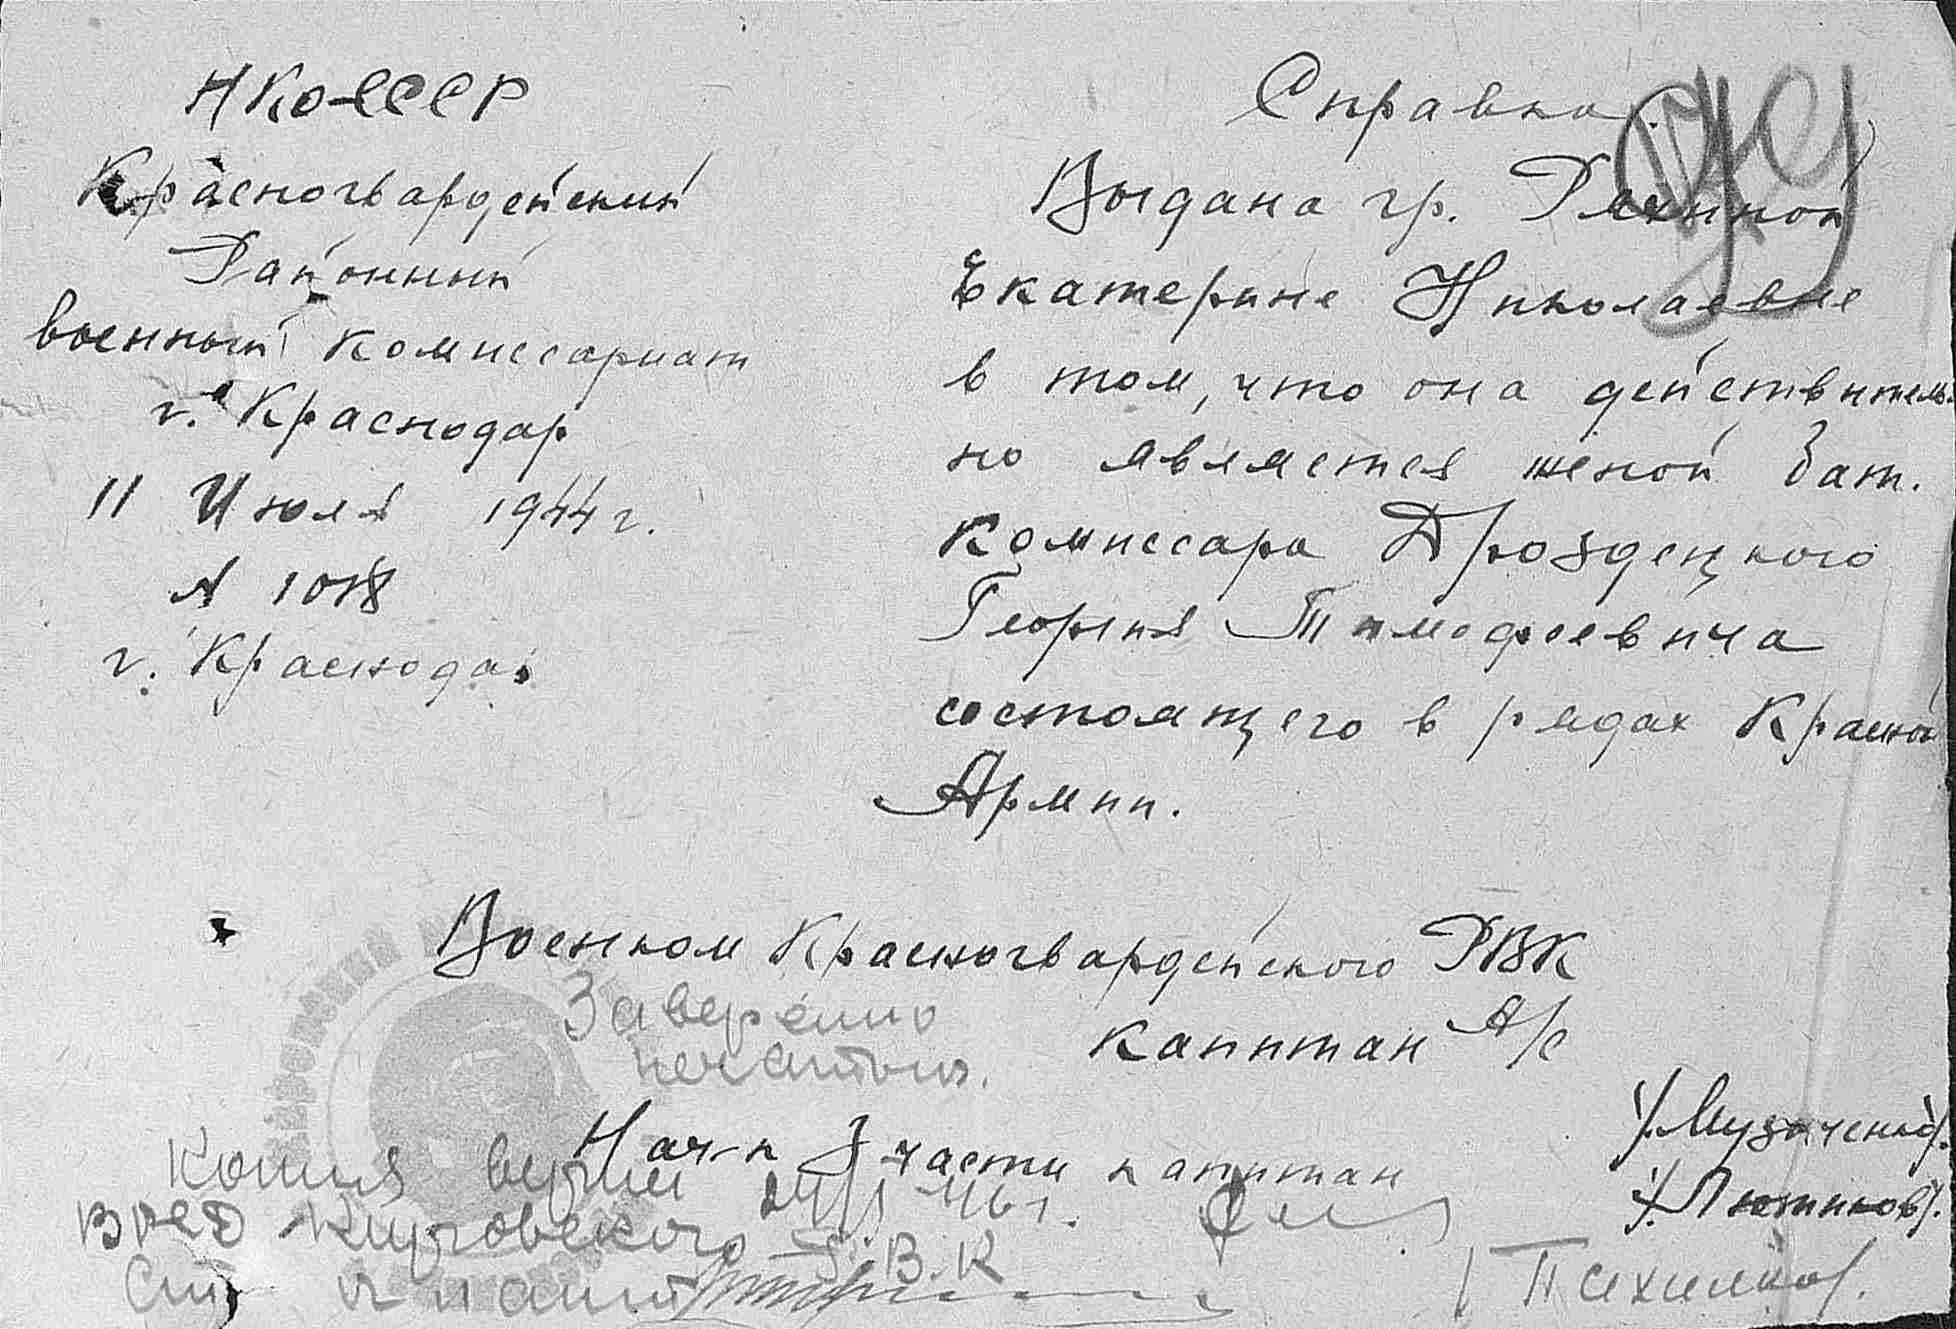 НКО-СССР
Красногвардейский
Районный
военный комиссариат
г. Краснодар
11 Июля 1944 г.
г. Краснодар
Справка.
Выдана гр.
Екатерине Николаевне
в том, что она действитель-
но является женой бат.
комиссара Дроздецкого
Георгия Тимофеевича
состоящего в рядах Красной
Армии.
Военком Красногвардейского РВК
капитан
Заверено
печатью.
/Музыченко/.
Нач-к 3 части капитан
/Лютиков/.
Копия верна 24/I 46 г.
Кировского Р.В.К